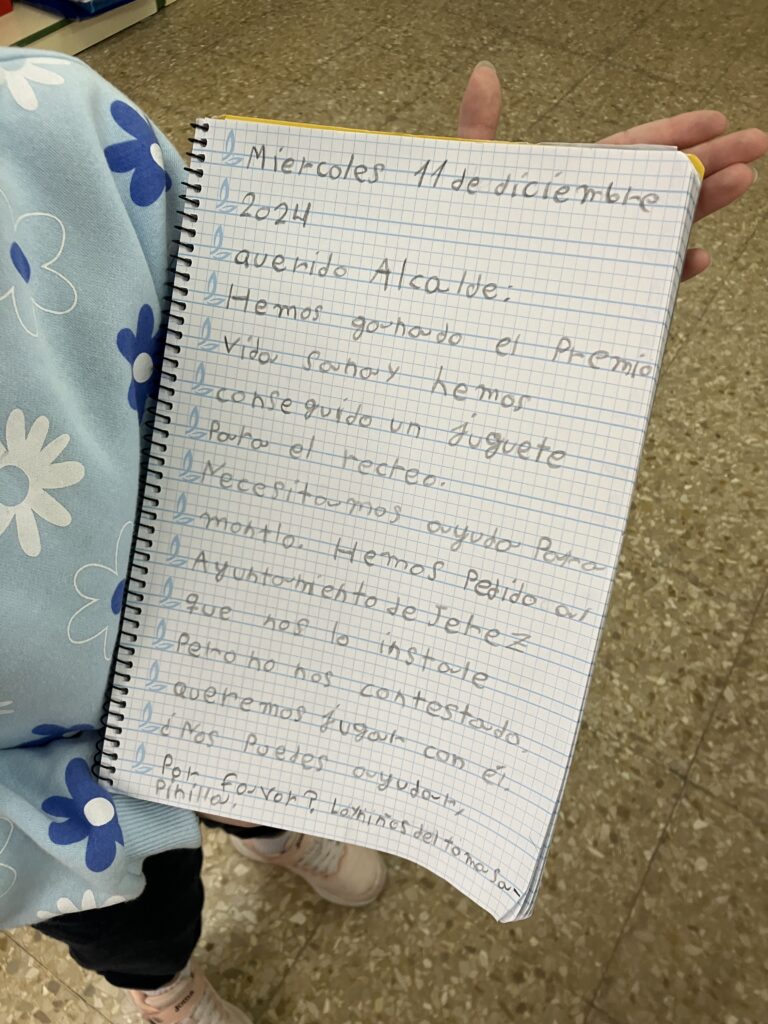 Miercoles 11 de diciembre
2024
querido Alcalde:
Hemos ganado el Premio
Vida Sana y hemos
conseguido un juguete
Para el recreo.
Necesitamos ayuda Para
montlo. Hemos Pedido al
Ayuntamiento de Jerez
que nos lo instale
Pero no nos contestado,
queremos jugar con él.
¿Nos Puedes ayudar,
Por favor? Lo niños del tomasa-
Pinilla.